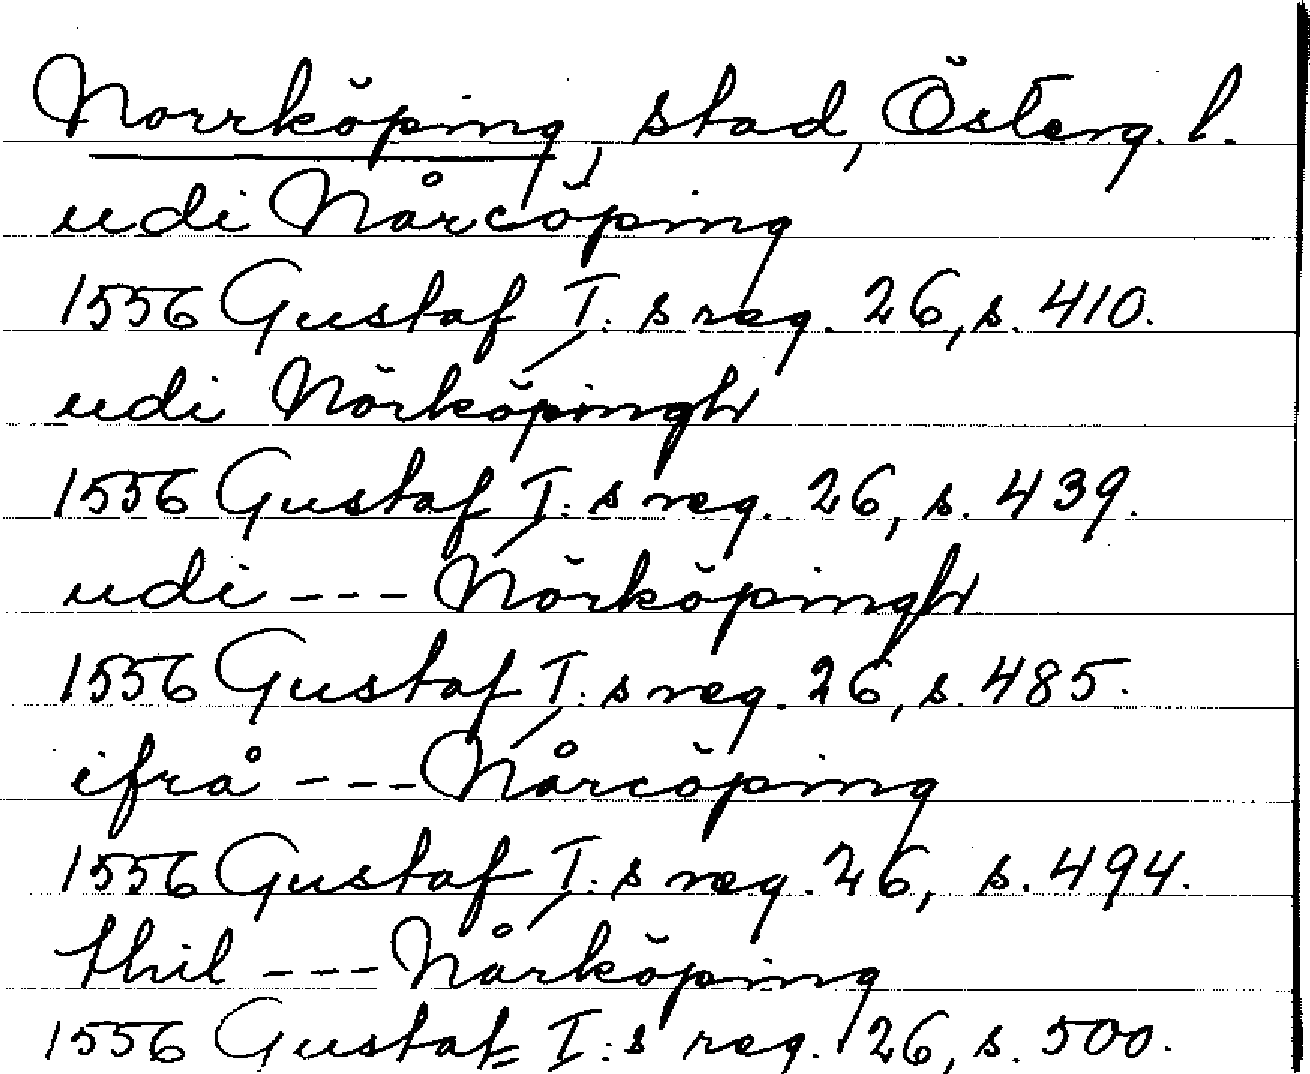 Norrköping, stad, Österg. l.
udi Nårcöping
1556 Gustaf I:s reg. 26, s. 410.
udi Nörköpingh
1556 Gustaf I:s reg. 26, s. 439.
udi --- Nörköpingh
1556 Gustaf I:s reg. 26, s. 485.
ifrå --- Nårcöping
1556 Gustaf I:s reg. 26, s. 494.
thil --- Nårköping
1556 Gustaf I:s reg. 26, s. 500.